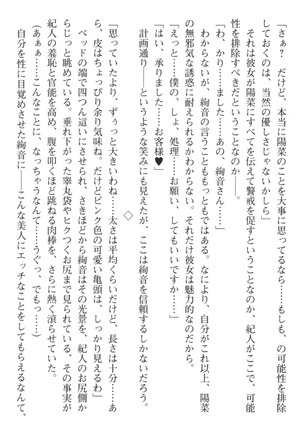 「さぁ？　だけど、本当に陽菜のことを大事に思ってるなら――もしも、の可能性を排除
しておくのは、当然の優しさじゃないかしら」
それは彼女が陽菜にすべてを伝えて警戒を促すということなのか、紀人がここで、可能
性を排除すべきだということなのか――。
「わ、わかり……ました……あの、絢音さん……」
わからないが、絢音の言うことももっともではある。なにより、自分がこれ以上、陽菜
の無邪気な誘惑に耐えられるかわからない。それだけ彼女は魅力的なのだから。
「えっと……僕の、しょ、処理……お願い、してもいいですか……」
「はい、承りました……お客様♥」
計画通り――というような笑みにも見えたが、ここは絢音を信頼するしかないだろう。
◇
「思っていたより、ずぅっと大きいわね……太さは平均くらいだけど、長さは十分……あ
ら、皮はちょっぴり余り気味ね。だけどピンク色の可愛い亀頭は、しっかり見えるわ」
ベッドの端で四つん這いにさせられ、さきほどから絢音はその光景を、紀人のお尻側か
らじっと眺めている。垂れ下がった睾丸袋やヒクつくお尻まで見られている、その事実が
紀人の羞恥と官能を高め、腹を叩くほど跳ねる肉棒を、さらに熱く滾らせていた。
（あぁぁ……こんなことに、なっちゃうなんて……うぐっ、でもっ……）
自分を性に目覚めさせた絢音に――こんな美人にエッチなことをしてもらえるなんて、